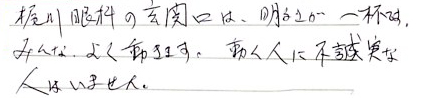 梶川眼科の玄関口は、明るさが一杯です。
みんな、よく動きます。動く人に不誠実な
人はいません。